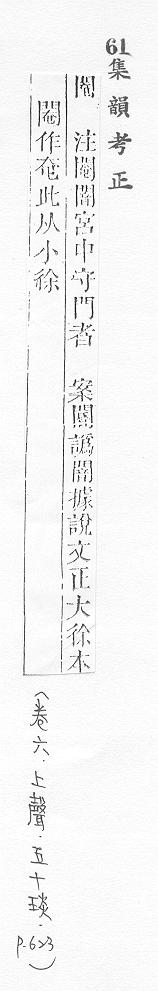 61集韻考正
閹　注閹閽宮中守門者　案閽譌闇據說文正大徐本
閹作奄此从小徐
(卷六.上聲.五十琰.
P.623)